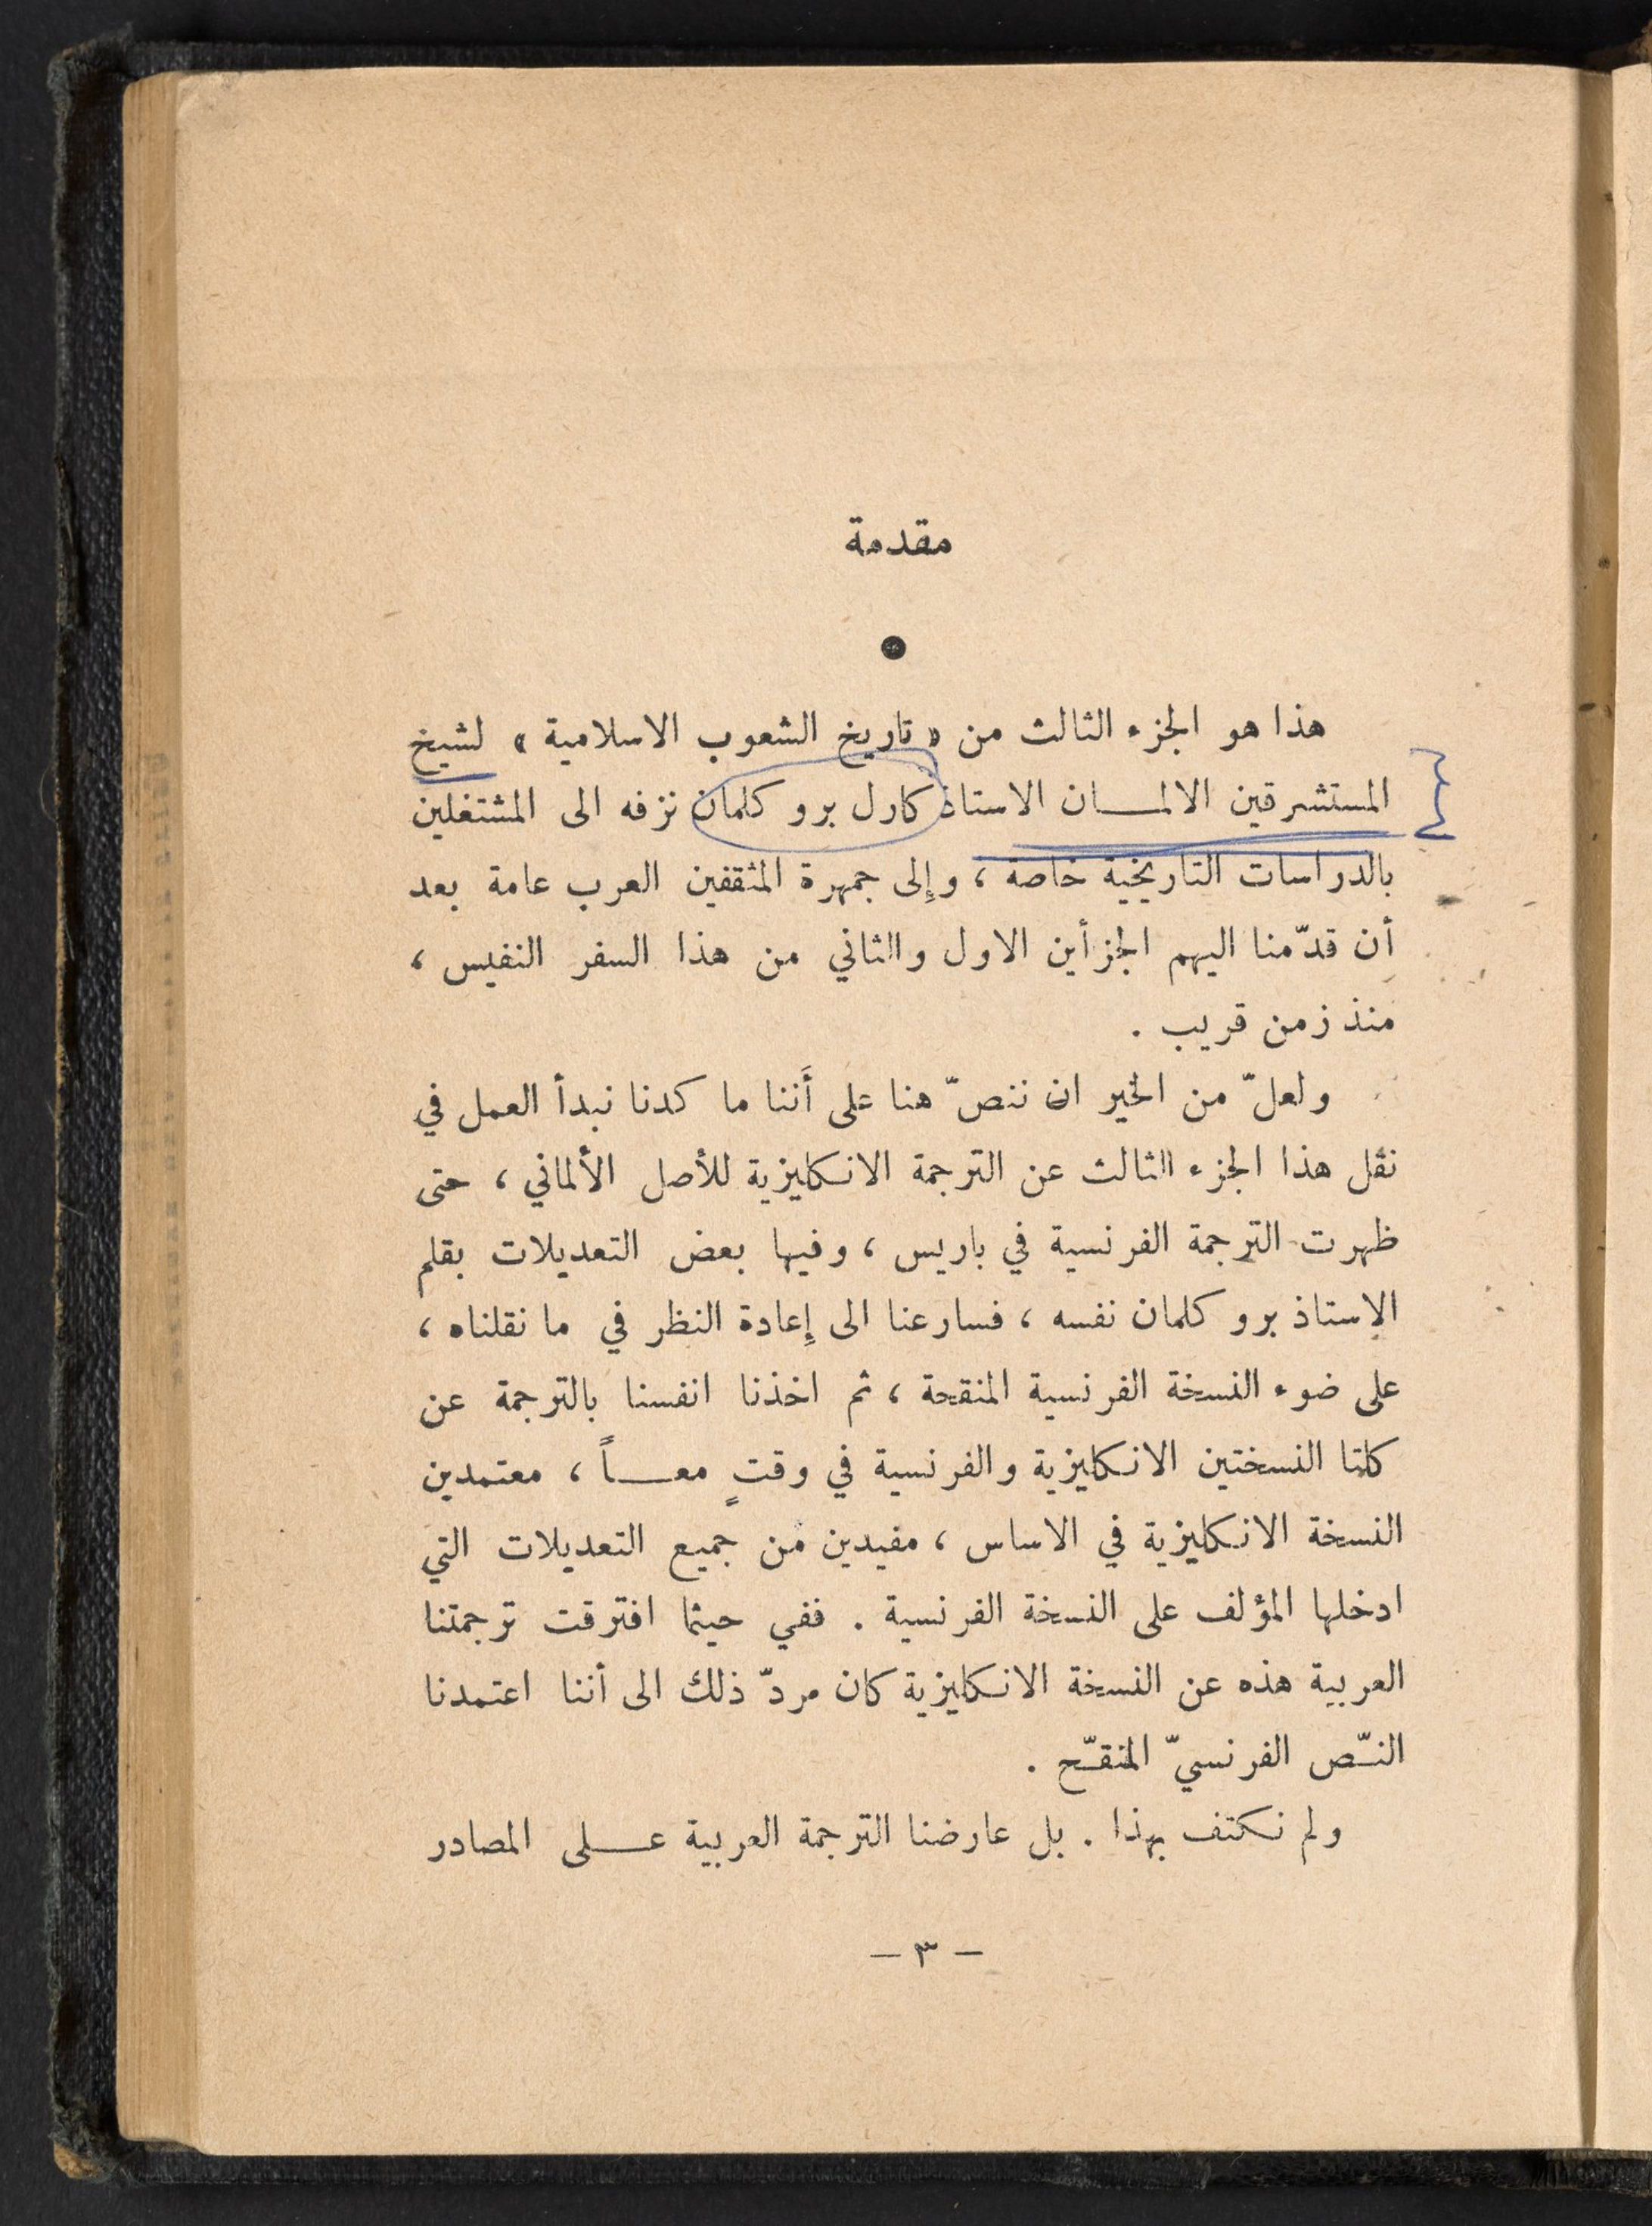 مقدمة
هذا هو الجزء الثالث من « تاريخ الشعوب الاسلامية » لشيخ
المستشرقين الالمــان الاستاذ كارل برو كلمان نزفه الى المشتغلين
بالدراسات التاريخية خاصة ، وإلى جمهرة المثقفين العرب عامة بعد
أن قدّمنا اليهم الجزأين الاول والثاني من هذا السفر النفيس ،
منذ زمن قريب .
ولعلّ من الخير ان ننصّ هنا على أَننا ما كدنا نبدأ العمل في
نقل هذا الجزء الثالث عن الترجمة الانكليزية للأصل الألماني ، حتى
ظهرت الترجمة الفرنسية في باريس ، وفيها بعض التعديلات بقلم
الاستاذ برو كلمان نفسه ، فسارعنا الى إعادة النظر في ما نقلناه ،
على ضوء النسخة الفرنسية المنقحة ، ثم اخذنا انفسنا بالترجمة عن
كلتا النسختين الانكليزية والفرنسية في وقتٍ معــاً ، معتمدين
النسخة الانكليزية في الاساس ، مفيدين من جميع التعديلات التي
ادخلها المؤلف على النسخة الفرنسية . ففي حيثما افترقت ترجمتنا
العربية هذه عن النسخة الانكليزية كان مردّ ذلك الى أننا اعتمدنا
النـّص الفرنسيّ المنقـّح .
ولم نكتف بهذا . بل عارضنا الترجمة العربية عــلى المصادر
– ٣ –